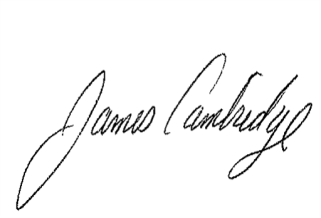 James Cambridge